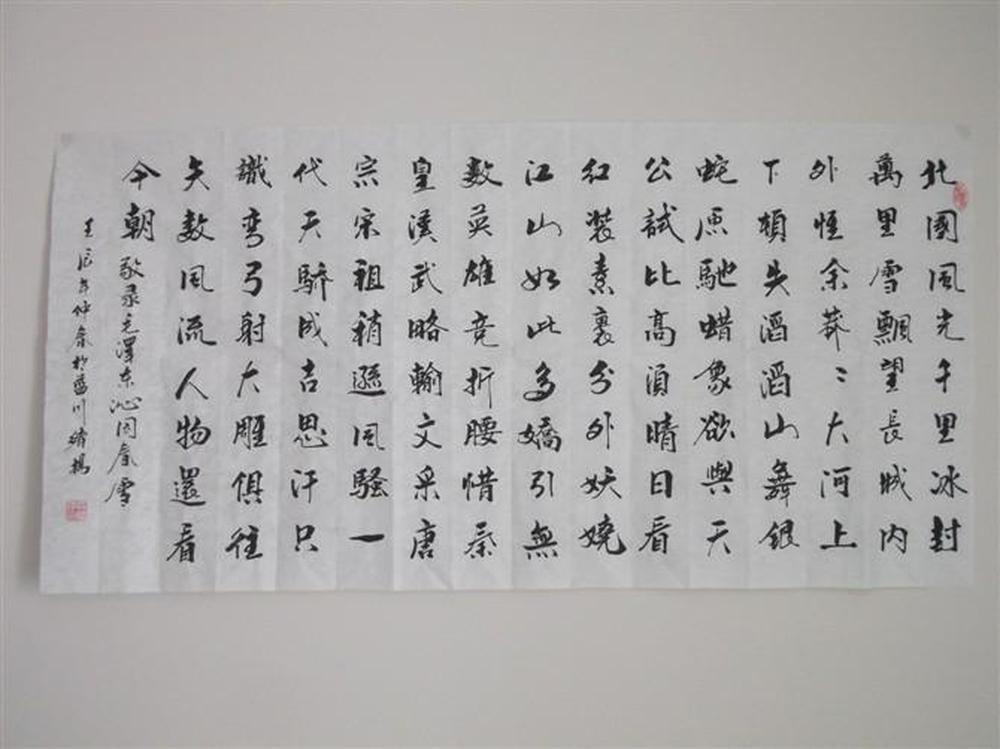 北國風光千里冰封
萬里雪飄望長城内
外惟余莽〻大河上
下頓失滔滔山舞銀
蛇原馳蜡象欲與天
公試比高須晴日看
红裝素裹分外妖娆
江山如此多嬌引無
數英雄竞折腰惜秦
皇漢武略輸文采唐
宗宋祖稍遜風騷一
代天驕成吉思汗只
識弯弓射大雕俱往
矣数風流人物還看
今朝
敬录毛澤东沁园春雪
壬辰年仲春於 川